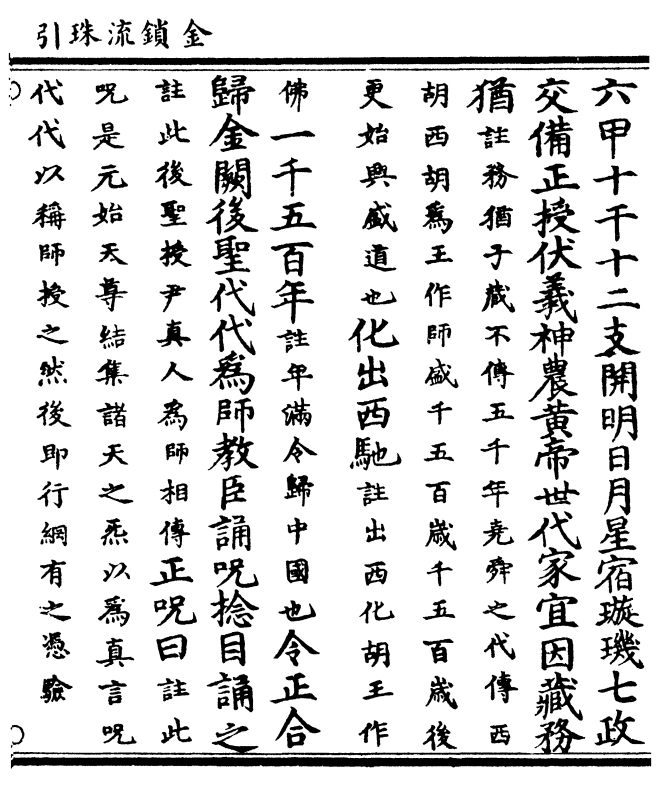 金鎖流珠引
六甲十干十二支開明日月星宿璇璣七政
交備正授伏羲神農黄帝世代家宜因藏務
猶註務猶子藏不傳五千年堯舜之代傳西
胡西胡爲王作師盛千五百歳千五百歳後
更始興盛道也化出西馳註出西化胡王作
佛一千五百年註年滿令歸中國也令正合
歸金闕後聖代代爲師教臣誦呪捻目誦之
註此後聖授尹真人爲師相傳正呪曰註此
呪是元始天尊結集諸天之炁以爲真言呪
代代以稱師授之然後即行綱有之憑驗